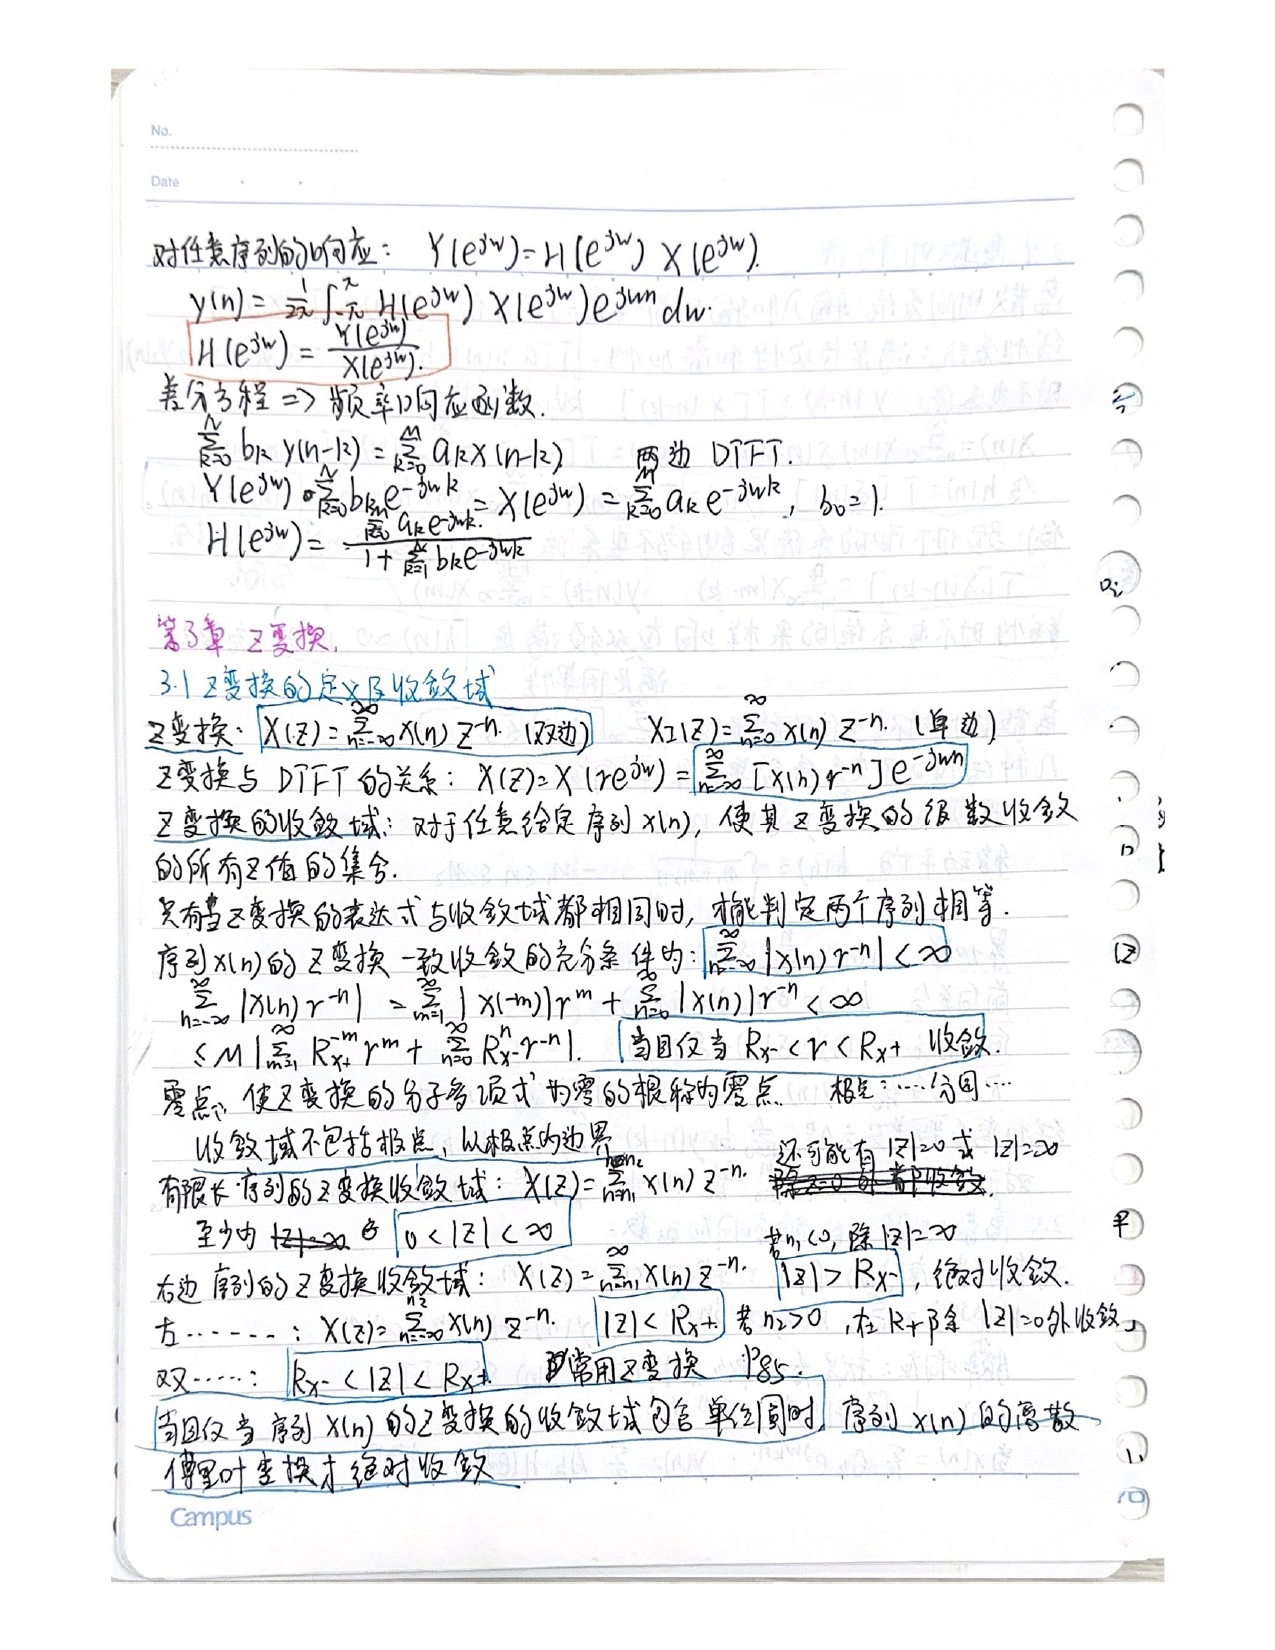 No.
Date
对任意序列的响应: Y(e^{jw})=H(e^{jw}) X(e^{jw}).
y(n)= \frac{1}{2π} ∫_{-π}^{π} H(e^{jw}) X(e^{jw}) e^{jwn} dw.
H(e^{jw}) = \frac{Y(e^{jw})}{X(e^{jw})}.
差分方程 => 频率响应函数.
\sum_{k=0}^{N} b_k y(n-k) = \sum_{k=0}^{M} a_k x(n-k) 两边 DTFT.
Y(e^{jw}) \sum_{k=0}^{N} b_k e^{-jwk} = X(e^{jw}) = \sum_{k=0}^{M} a_k e^{-jwk}, b_0=1.
H(e^{jw}) = \frac{\sum_{k=0}^{M} a_k e^{-jwk}}{1+\sum_{k=1}^{N} b_k e^{-jwk}}
第3章 Z变换.
3.1 Z变换的定义及收敛域
Z变换: X(Z)=\sum_{n=-∞}^{∞} x(n) Z^{-n}. (双边) X_I(Z)=\sum_{n=0}^{∞} x(n) Z^{-n}. (单边)
Z变换与 DTFT 的关系: X(Z)=X(re^{jw}) = \sum_{n=-∞}^{∞} [x(n) r^{-n}] e^{-jwn}
Z变换的收敛域: 对于任意给定序列 x(n), 使其Z变换的级数收敛
的所有Z值的集合.
只有当Z变换的表达式与收敛域都相同时, 才能判定两个序列相等.
序列x(n)的Z变换一致收敛的充分条件为: \sum_{n=-∞}^{∞} |x(n) r^{-n}| < ∞
\sum_{n=-∞}^{∞} |x(n) r^{-n}| = \sum_{m=1}^{∞} |x(-m)| r^m + \sum_{n=0}^{∞} |x(n)| r^{-n} < ∞
≤ M | \sum_{m=1}^{∞} R_{x+}^{-m} r^m + \sum_{n=0}^{∞} R_{x-}^{n} r^{-n} |. 当且仅当 R_{x-} < r < R_{x+} 收敛.
零点: 使Z变换的分子多项式为零的根称为零点. 极点:……分母……
收敛域不包括极点, 以极点为边界
还可能有 |Z|=0 或 |Z|=∞
有限长序列的Z变换收敛域: X(Z)=\sum_{n=n_1}^{n=n_2} x(n) Z^{-n}.
至少为 0<|Z|<∞ 若n_1<0, 除|Z|=∞
右边序列的Z变换收敛域: X(Z)=\sum_{n=n_1}^{∞} x(n) Z^{-n}. |Z|>R_{x-}, 绝对收敛.
左……: X(Z)=\sum_{n=-∞}^{n_2} x(n) Z^{-n}. |Z|<R_{x+} 若n_2>0, 在R+除|Z|=0外收敛
双……: R_{x-}<|Z|<R_{x+} 常用Z变换 P85.
当且仅当序列x(n)的Z变换的收敛域包含单位圆时, 序列x(n)的离散
傅里叶变换才绝对收敛
Campus